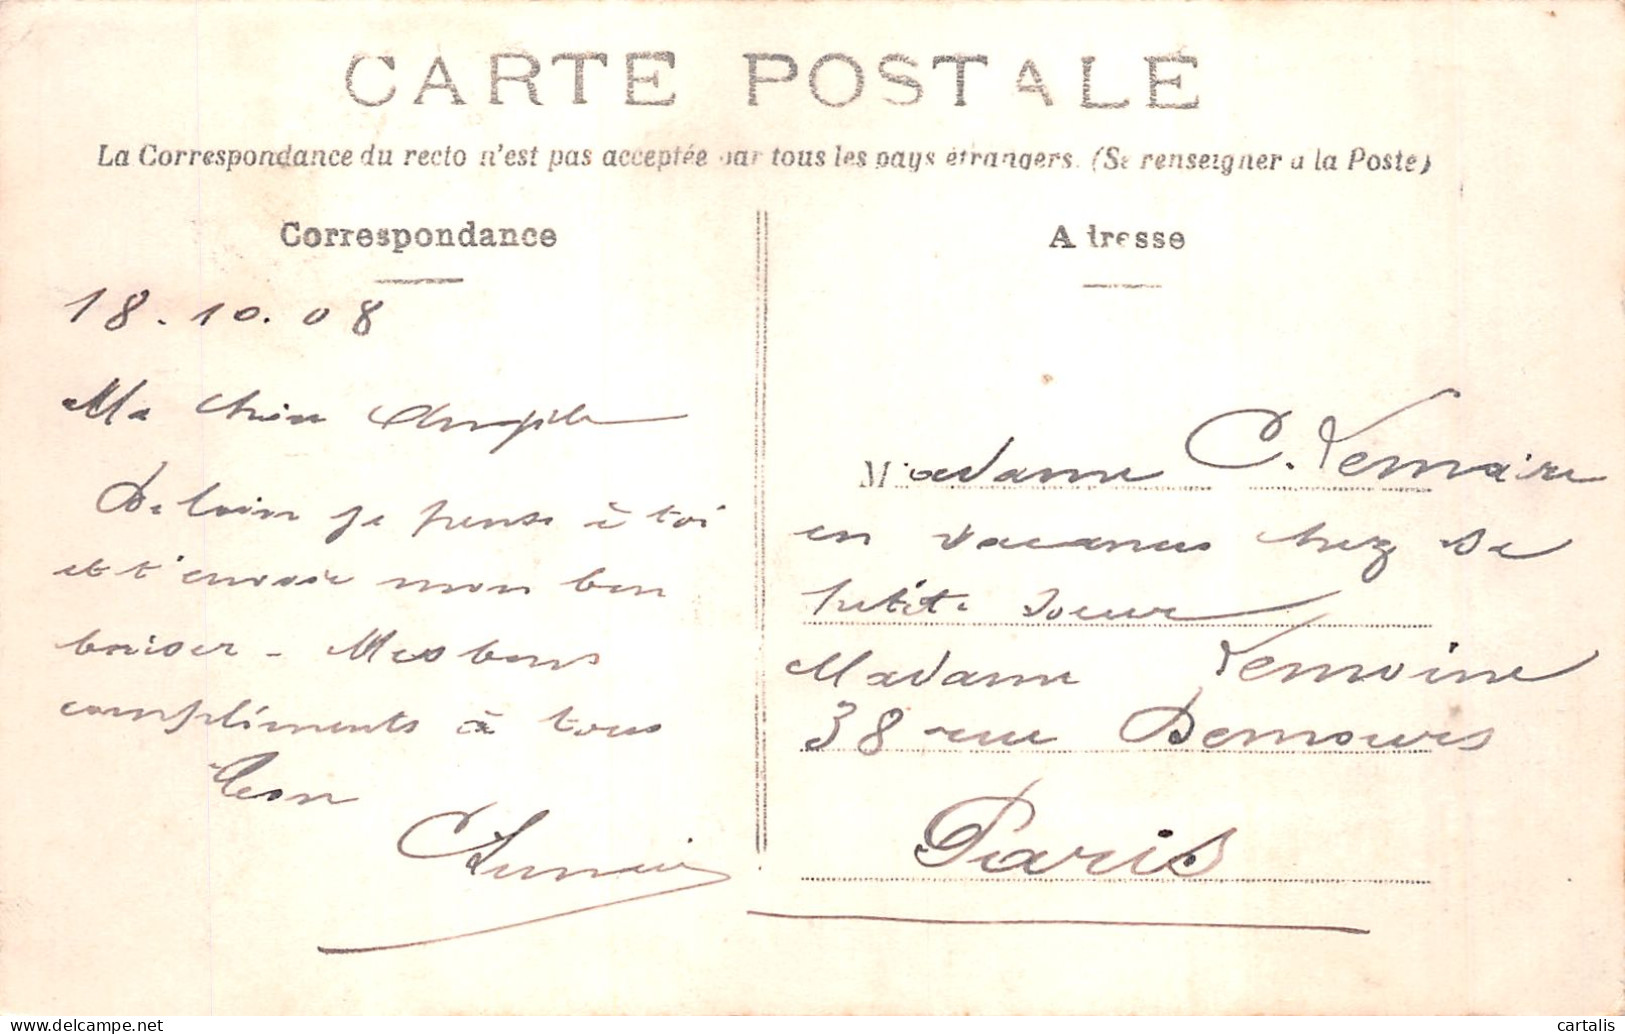 CARTE POSTALE
La Correspondance du recto n'est pas acceptée par tous les pays étrangers. (Se renseigner à la Poste)
Correspondance
Adresse
18.10.08
Ma chère
De loin je pense à toi
et t'envoie mon bon
baiser - Mes bons
compliments à tous
Léon
Madame C. Lemaire
en vacances chez sa
petite soeur
Madame Lemoine
38 rue Demours
Paris
cartalis